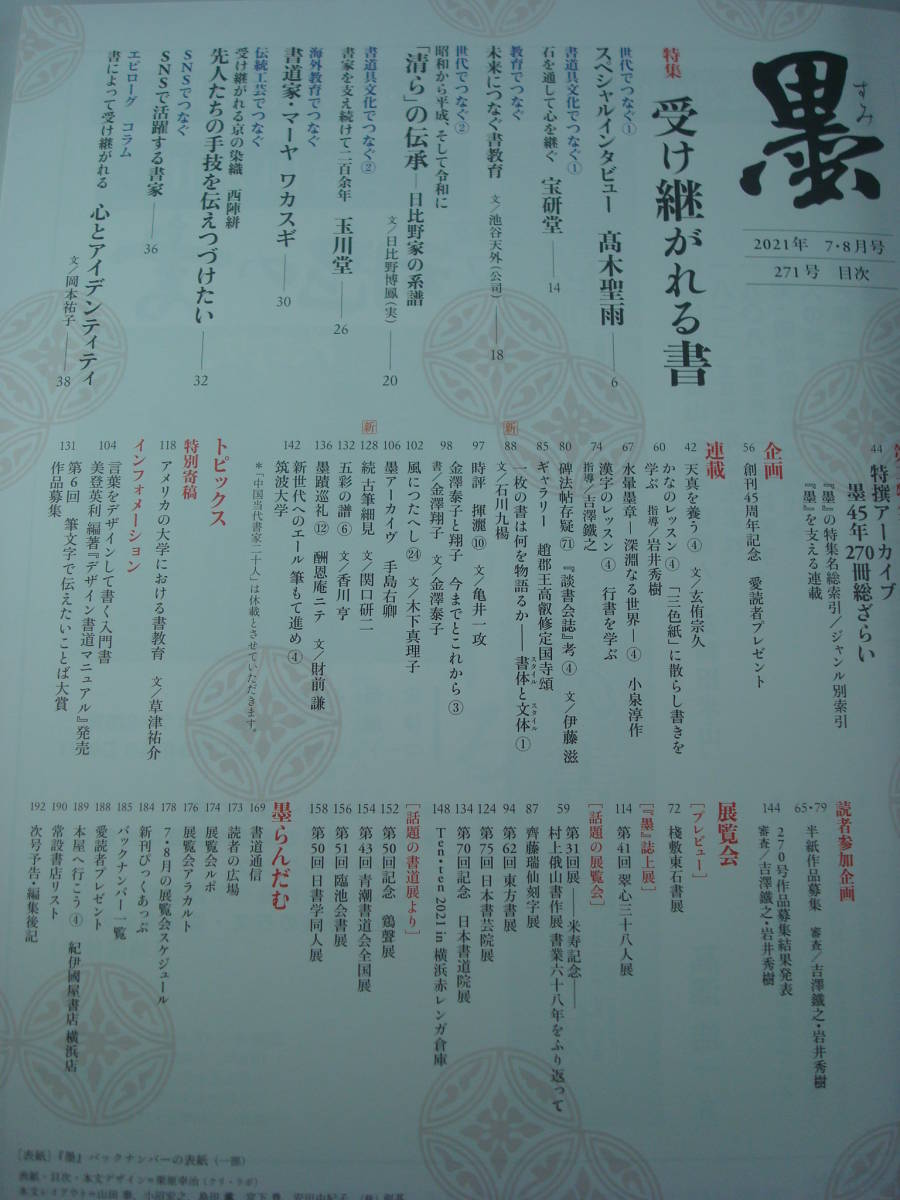 墨
すみ
2021年 7・8月号
271号 目次
特集 受け継がれる書
世代でつなぐ①
スペシャルインタビュー 髙木聖雨 6
書道具文化でつなぐ①
石を通して心を継ぐ 宝研堂 14
教育でつなぐ
未来につなぐ書教育 文/池谷天外(公司) 18
世代でつなぐ②
昭和から平成、そして令和に
「清ら」の伝承―日比野家の系譜
文/日比野博鳳(実) 20
書道具文化でつなぐ②
書家を支え続けて二百余年 玉川堂 26
海外教育でつなぐ
書道家・マーヤ ワカスギ 30
伝統工芸でつなぐ
受け継がれる京の染織 西陣絣
先人たちの手技を伝えつづけたい 32
SNSでつなぐ
SNSで活躍する書家 36
エピローグ コラム
書によって受け継がれる 心とアイデンティティ
文/岡本祐子 38
44 特撰アーカイブ
墨45年270冊総ざらい
『墨』の特集名総索引/ジャンル別索引
『墨』を支える連載
企画
56 創刊45周年記念 愛読者プレゼント
連載
42 天真を養う④ 文/玄侑宗久
60 かなのレッスン④ 「三色紙」に散らし書きを
学ぶ 指導/岩井秀樹
67 水暈墨章―深淵なる世界―④ 小泉淳作
74 漢字のレッスン④ 行書を学ぶ
指導/吉澤鐵之
80 碑法帖存疑㉛ 『談書会誌』考④ 文/伊藤 滋
85 ギャラリー 趙郡王高叡修定国寺頌
新
88 一枚の書は何を物語るか――書体と文体①
スタイル スタイル
文/石川九楊
97 時評 揮灑⑩ 文/亀井一攻
98 金澤泰子と翔子 今までとこれから③
書/金澤翔子 文/金澤泰子
102 風につたへし㉔ 文/木下真理子
106 墨アーカイヴ 手島右卿
新
128 続古筆細見 文/関口研二
132 五彩の譜⑥ 文/香川 亨
136 墨蹟巡礼⑫ 酬恩庵ニテ 文/財前 謙
142 新世代へのエール 筆もて進め④
筑波大学
*「中国当代書家二十人」は休載とさせていただきます。
トピックス
特別寄稿
118 アメリカの大学における書教育 文/草津祐介
インフォメーション
104 言葉をデザインして書く入門書
美登英利 編著『デザイン書道マニュアル』発売
131 第6回 筆文字で伝えたいことば大賞
作品募集
読者参加企画
65・79 半紙作品募集 審査/吉澤鐵之・岩井秀樹
144 270号作品募集結果発表
審査/吉澤鐵之・岩井秀樹
展覧会
[プレビュー]
72 桟敷東石書展
[『墨』誌上展]
114 第41回 翠心三十八人展
[話題の展覧会]
59 第31回展――米寿記念――
村上俄山書作展 書業六十八年をふり返って
87 齊藤瑞仙刻字展
94 第62回 東方書展
124 第75回 日本書芸院展
134 第70回記念 日本書道院展
148 Ten・ten 2021 in 横浜赤レンガ倉庫
[話題の書道展より]
152 第50回記念 鶏聲展
154 第43回 青潮書道会全国展
156 第51回 臨池会書展
158 第50回 日書学同人展
墨らんだむ
169 書道通信
173 読者の広場
174 展覧会ルポ
176 展覧会アラカルト
178 7・8月の展覧会スケジュール
184 新刊ぴっくあっぷ
185 バックナンバー一覧
188 愛読者プレゼント
189 本屋へ行こう④ 紀伊國屋書店 横浜店
190 常設書店リスト
192 次号予告・編集後記
[表紙]『墨』バックナンバーの表紙(一部)
表紙・目次・本文デザイン=栗原幸治(クリ・ラボ)